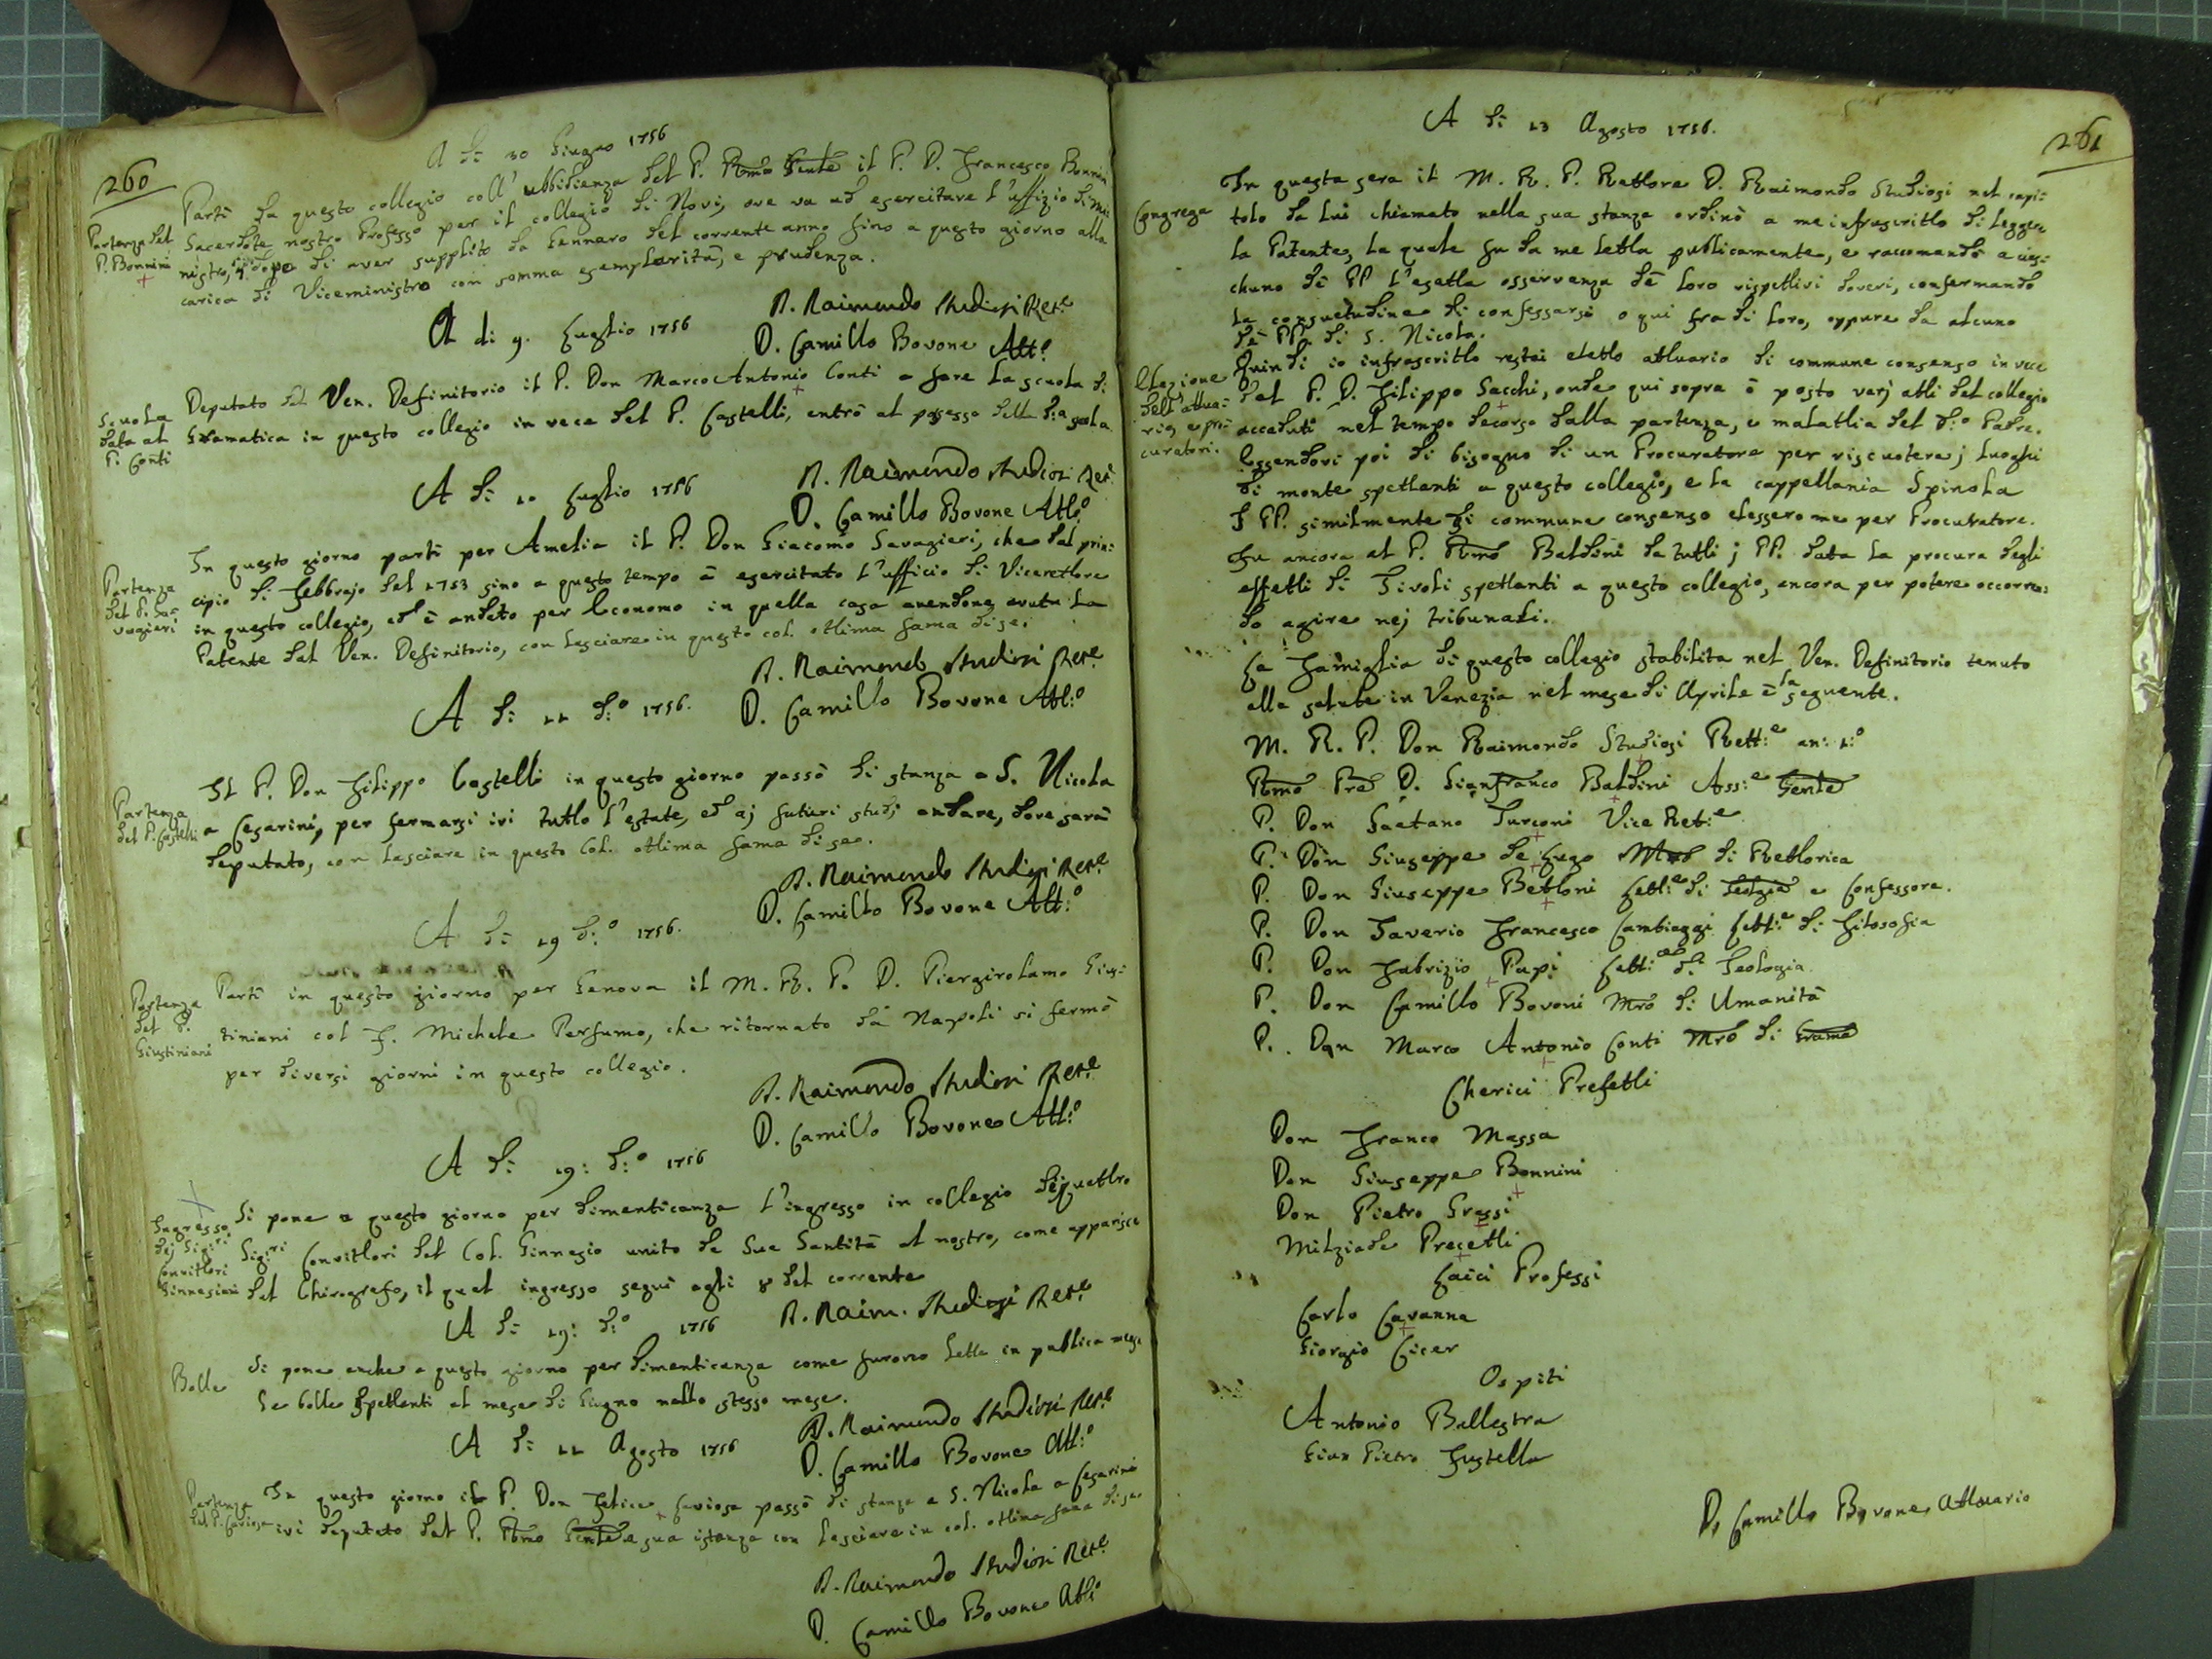 260
A dì 30 Giugno 1756
Partenza del
P. Bonnini
Partì da questo collegio coll'ubbidienza del P. Rmo Gentle il P. D. Francesco Bonnini
Sacerdote nostro Professo per il collegio di Novi, ove va ad esercitare l'uffizio di Mi-
nistro, dopo di aver supplito da Gennaro del corrente anno fino a questo giorno alla
carica di Viceministro con somma esemplarità, e prudenza.
D. Raimondo Studiosi Ret.e
D. Camillo Bovone Att.o
A di 9. Luglio 1756
Scuola
data al
P. Conti
Deputato dal Ven. Definitorio il P. Don Marco Antonio Conti a fare la scuola di
Gramatica in questo collegio in vece del P. Castelli, entrò al possesso della d.a scola
D. Raimondo Studiosi Ret.
D. Camillo Bovone Att.o
A dì 10 Luglio 1756
Partenza
del P. Sa-
vagieri
In questo giorno partì per Amelia il P. Don Giacomo Savagieri, che dal prin:
cipio di Febbrajo del 1753 sino a questo tempo à esercitato l'ufficio di Vicerettore
in questo collegio, ed è andato per Economo in quella casa avendone avuta la
Patente dal Ven. Definitorio, con lasciare in questo col. ottima fama di se.
D. Raimondo Studiosi Ret.e
D. Camillo Bovone Att.o
A dì 11 d.o 1756.
Partenza
del P. Castelli
Il P. Don Filippo Castelli in questo giorno passò di stanza a S. Nicola
a Cesarini, per fermarsi ivi tutto l'estate, ed aj futuri studj andare, dove sarà
deputato, con lasciare in questo Col. ottima fama di se.
D. Raimondo Studiosi Ret.e
D. Camillo Bovone Att.o
A dì 19 d.o 1756.
Partenza
del P.
Giustiniani
Partì in questo giorno per Genova il M. R. P. D. Piergirolamo Gius:
tiniani col F. Michele Perfumo, che ritornato da Napoli si fermò
per diversi giorni in questo collegio.
D. Raimondo Studiosi Ret.e
D. Camillo Bovone Att.o
A dì 19: d.o 1756
Ingresso
dej Sig.ri
Convittori
Ginnasiani
Si pone a questo giorno per dimenticanza l'ingresso in collegio dej quattro
Sig.ri Convittori del Col. Ginnasio unito da Sua Santità al nostro, come apparisce
dal Chirografo, il qual ingresso seguì agli 8 del corrente
D. Raim. Studiosi Ret.e
A dì 19: d.o 1756
Bolle
Si pone anche a questo giorno per dimenticanza come furono lette in publica mensa
le bolle spettanti al mese di Giugno nello stesso mese.
D. Raimondo Studiosi Ret.e
D. Camillo Bovone Att.o
A dì 11 Agosto 1756
Partenza
del P. Caviosa
In questo giorno il P. Don Felice Caviosa passò di stanza a S. Nicola a Cesarini
ivi deputato dal P. Rmo Gentle a sua istanza con lasciare in col. ottima fama di se
D. Raimondo Studiosi Ret.e
D. Camillo Bovone Att.o
261
A dì 13 Agosto 1756.
Congrega
In questa sera il M. R. P. Rettore D. Raimondo Studiosi nel capi:
tolo da lui chiamato nella sua stanza ordinò a me infrascritto di leggere
la Patente, la quale fu da me letta publicamente, e raccomandò a cias:
cheuno dè PP l'esatta osservanza dè loro rispettivi doveri, confermando
la consuetudine di confessarsi o qui fra di loro, oppure da alcuno
dè PP. di S. Nicola.
Elezione
dell'attua:
rio, e pro:
curatori.
Quindi io infrascritto restai eletto attuario di commune consenso in vece
del P. D. Filippo Sacchi, onde qui sopra ò posto varj atti del collegio
accaduti nel tempo decorso dalla partenza, e malattia del d.o Padre.
Essendovi poi di bisogno di un Procuratore per riscuotere j luoghi
di monte spettanti a questo collegio, e la cappellania Spinola
I PP. similmente di commune consenso elessero me per Procuratore.
Fu ancora al P. Rmo Baldini da tutti j PP. data la procura degli
effetti di Tivoli spettanti a questo collegio, ancora per potere occorren:
do agire nej tribunali.
La Famiglia di questo collegio stabilita nel Ven. Definitorio tenuto
alla salute in Venezia nel mese di Aprile è la seguente.
M. R. P. Don Raimondo Studiosi Rett.e an: 1.o
Rmo Pre D. Gianfranco Baldini Ass:e Gentle
P. Don Gaetano Turconi Vice Ret:e
P. Don Giuseppe de Lugo Mro di Rettorica
P. Don Giuseppe Bettoni Lett:e di Teolgia e Confessore.
P. Don Saverio Francesco Cambiaggi Lett:e di Filosofia
P. Don Fabrizio Papi Lett: di Teologia
P. Don Camillo Bovoni Mro di Umanità
P. Don Marco Antonio Conti Mro di Grama
Cherici Prefetti
Don Franco Massa
Don Giuseppe Bonnini
Don Pietro Grassi
Milziade Precetti
Laici Professi
Carlo Cavanna
Giorgio Cicer
Ospiti
Antonio Ballestra
Gian Pietro Fustella
D. Camillo Bovone Attuario